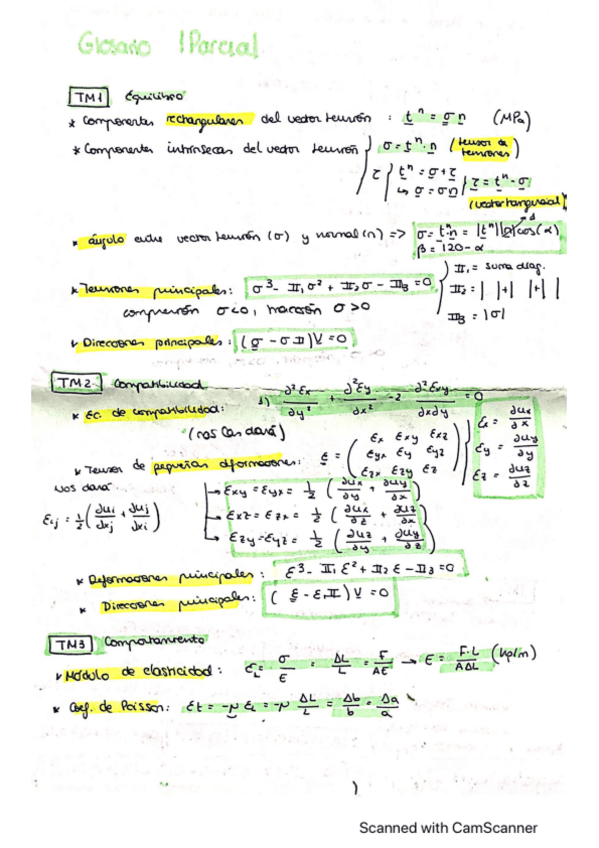 Glosario 1 Parcial
TM1 Equilibrio
* Componentes rectangulares del vector tensión : t^n = σ n (MPa)
* Componentes intrínsecas del vector tensión { σ = t^n · n (tensor de tensiones)
τ { t^n = σ + τ
↳ σ = σn } τ = t^n - σ
(vector tangencial)
* ángulo entre vector tensión (σ) y normal (n) => σ = t^n·n = |t^n||n|cos(α)
β = 120 - α
* Tensiones principales: σ³ - II₁σ² + II₂σ - II₃ = 0 } II₁ = suma diag.
compresión σ<0, tracción σ>0 II₂ = | |+| |+| |
II₃ = |σ|
* Direcciones principales: (σ - σ II) V = 0
TM2 Compatibilidad
* Ec. de compatibilidad: 1) ∂²Ex/∂y² + ∂²Ey/∂x² - 2 ∂²Exy/∂x∂y = 0
(nos las dará)
Ex = ∂ux/∂x
Ey = ∂uy/∂y
Ez = ∂uz/∂z
* Tensor de pequeñas deformaciones: E = ( Ex Exy Exz
Eyx Ey Eyz
Ezx Ezy Ez )
nos dará
Eij = 1/2 (∂ui/∂xj + ∂uj/∂xi)
→ Exy = Eyx = 1/2 (∂ux/∂y + ∂uy/∂x)
→ Exz = Ezx = 1/2 (∂ux/∂z + ∂uz/∂x)
→ Ezy = Eyz = 1/2 (∂uz/∂y + ∂uy/∂z)
* Deformaciones principales: E³ - II₁E² + II₂E - II₃ = 0
* Direcciones principales: (E - E, II) V = 0
TM3 Comportamiento
* Módulo de elasticidad: EL = σ/E = ΔL/L = F/AE → E = F·L/AΔL (kp/m)
* Coef. de Poisson: Et = -μ EL = -μ ΔL/L = Δb/b = Δa/a
)
Scanned with CamScanner